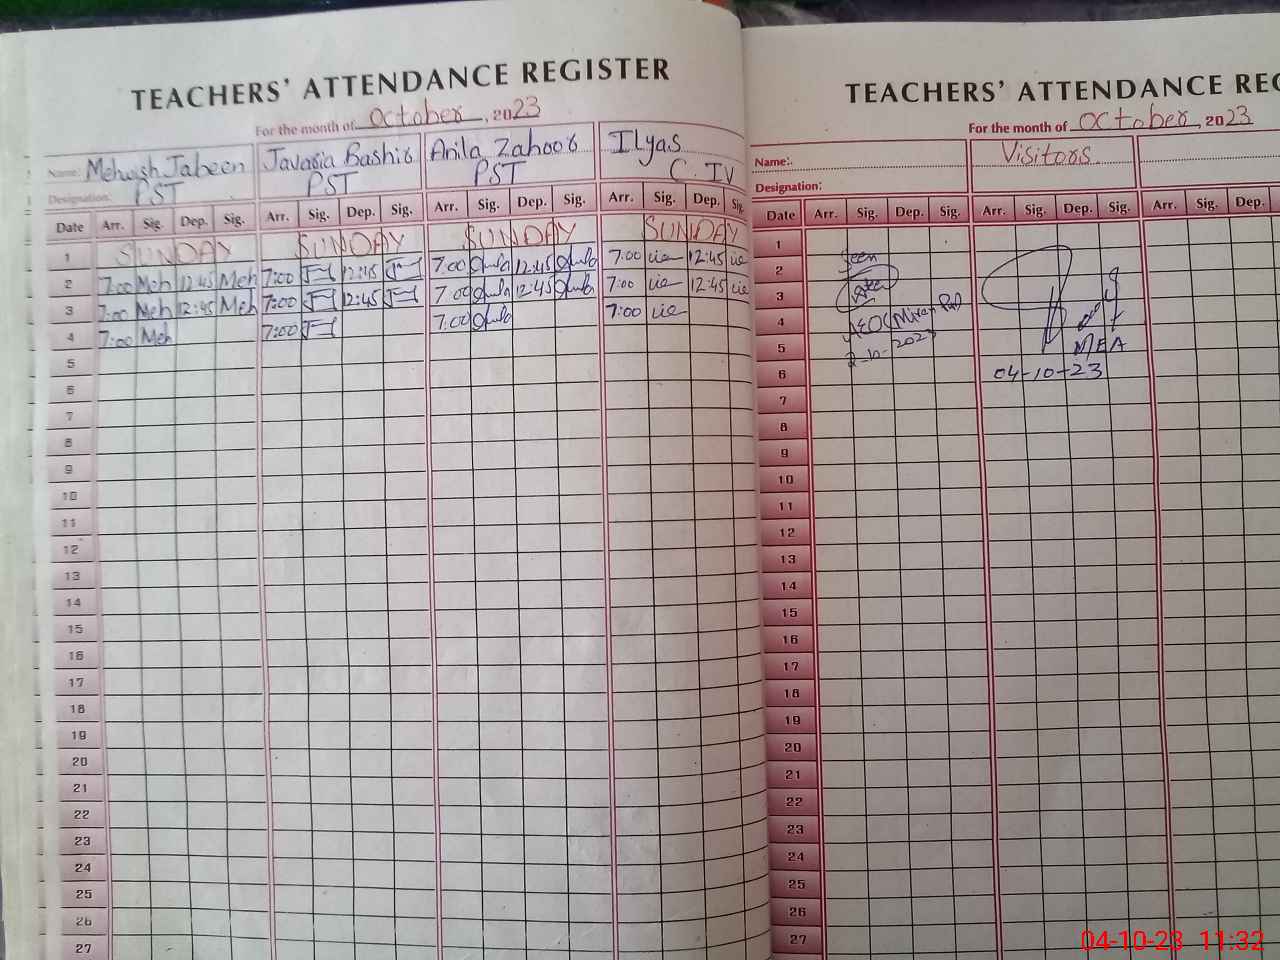 TEACHERS' ATTENDANCE REGISTER
For the month of October, 2023
Name: Mehwish Jabeen Javaria Bashir Anila Zahoor Ilyas
Designation: PST PST PST C.IV
Date Arr. Sig. Dep. Sig. Arr. Sig. Dep. Sig. Arr. Sig. Dep. Sig. Arr. Sig. Dep. Sig.
1 SUNDAY SUNDAY SUNDAY SUNDAY
2 7:00 Meh 12:45 Meh 7:00 12:45 7:00 12:45 7:00 12:45
3 7:00 Meh 12:45 Meh 7:00 12:45 7:00 12:45 7:00 12:45
4 7:00 Meh 7:00 7:00 7:00
5
6
7
8
9
10
11
12
13
14
15
16
17
18
19
20
21
22
23
24
25
26
27
TEACHERS' ATTENDANCE REG
For the month of October, 2023
Name: Visitors
Designation:
Date Arr. Sig. Dep. Sig. Arr. Sig. Dep. Sig. Arr. Sig. Dep.
1
2 Seen
3
4 AEO
5 2-10-2023 MEA
6 04-10-23
7
8
9
10
11
12
13
14
15
16
17
18
19
20
21
22
23
24
25
26
27
04-10-23 11:32